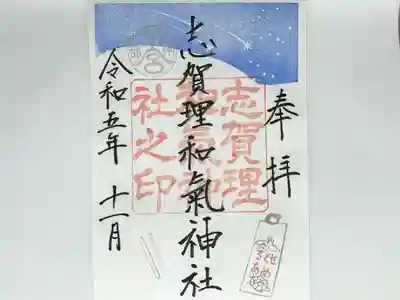 奉拝
志賀理和氣神社
令和五年 十一月
志賀理
和氣神
社之印